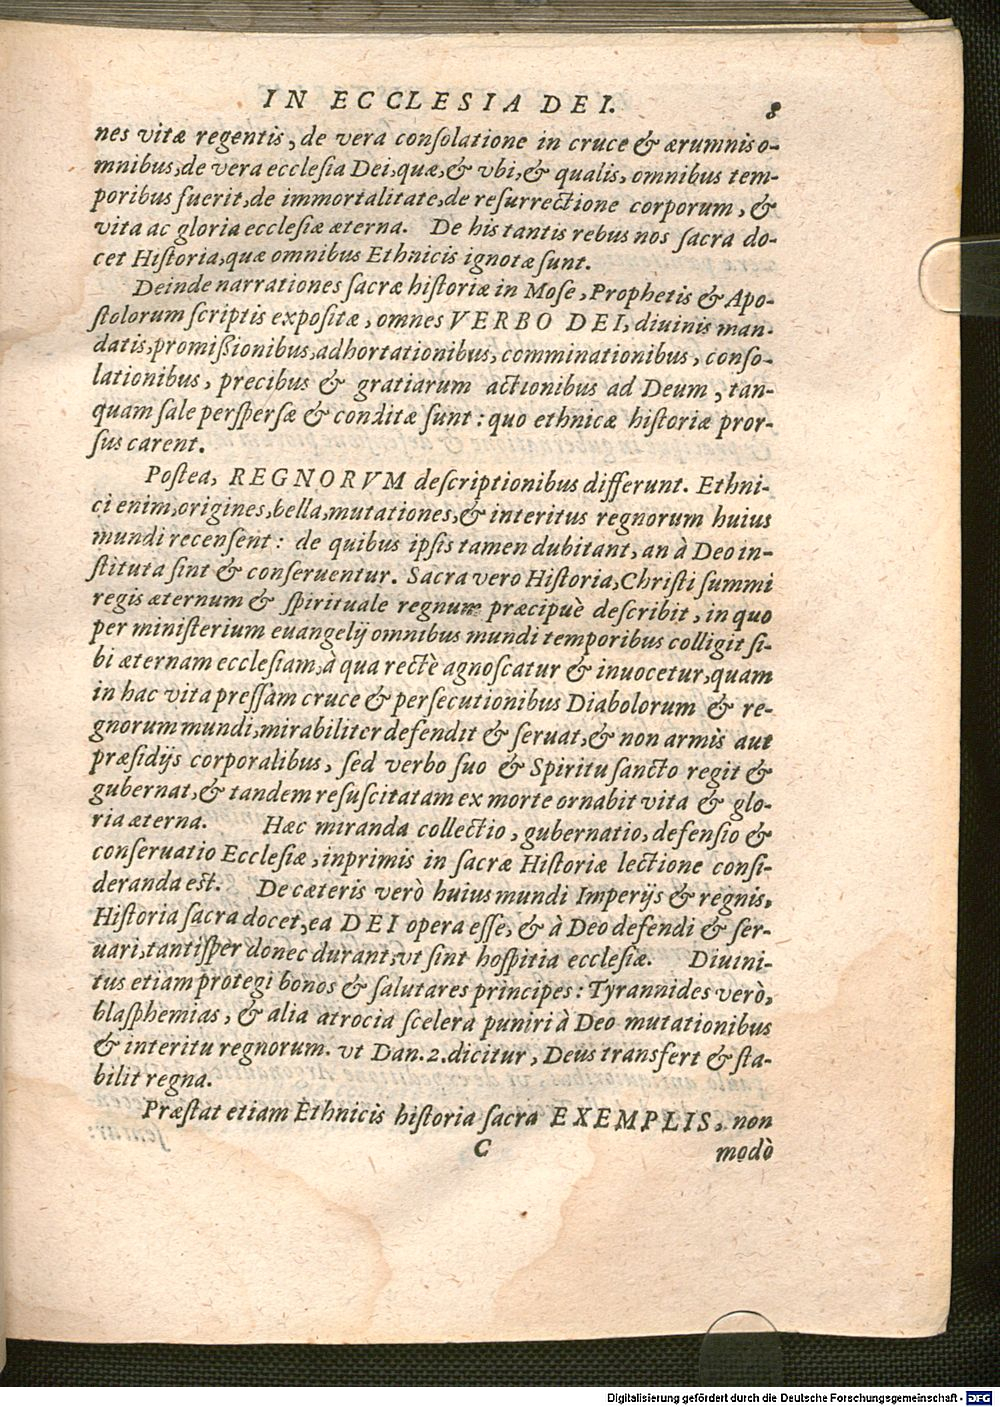 IN ECCLESIA DEI. 8
nes vitæ regentis, de vera conſolatione in cruce & ærumnis o-
mnibus, de vera eccleſia Dei, quæ, & vbi, & qualis, omnibus tem-
poribus fuerit, de immortalitate, de reſurrectione corporum, &
vita ac gloria eccleſiæ æterna. De his tantis rebus nos ſacra do-
cet Hiſtoria, quæ omnibus Ethnicis ignotæ ſunt.
Deinde narrationes ſacræ hiſtoriæ in Moſe, Prophetis & Apo-
ſtolorum ſcriptis expoſitæ, omnes VERBO DEI, diuinis man-
datis, promiſsionibus, adhortationibus, comminationibus, conſo-
lationibus, precibus & gratiarum actionibus ad Deum, tan-
quam ſale perſperſæ & conditæ ſunt: quo ethnicæ hiſtoriæ pror-
ſus carent.
Poſtea, REGNORVM deſcriptionibus differunt. Ethni-
ci enim, origines, bella, mutationes, & interitus regnorum huius
mundi recenſent: de quibus ipſis tamen dubitant, an à Deo in-
ſtituta ſint & conſeruentur. Sacra vero Hiſtoria, Chriſti ſummi
regis æternum & ſpirituale regnum præcipuè deſcribit, in quo
per miniſterium euangelij omnibus mundi temporibus colligit ſi-
bi æternam eccleſiam, à qua rectè agnoſcatur & inuocetur, quam
in hac vita preſſam cruce & perſecutionibus Diabolorum & re-
gnorum mundi, mirabiliter defendit & ſeruat, & non armis aut
præſidijs corporalibus, ſed verbo ſuo & Spiritu ſancto regit &
gubernat, & tandem reſuſcitatam ex morte ornabit vita & glo-
ria æterna. Hæc miranda collectio, gubernatio, defenſio &
conſeruatio Eccleſiæ, inprimis in ſacræ Hiſtoriæ lectione conſi-
deranda eſt. De cæteris verò huius mundi Imperijs & regnis,
Hiſtoria ſacra docet, ea DEI opera eſſe, & à Deo defendi & ſer-
uari, tantiſper donec durant, vt ſint hoſpitia eccleſiæ. Diuini-
tus etiam protegi bonos & ſalutares principes: Tyrannides verò,
blaſphemias, & alia atrocia ſcelera puniri à Deo mutationibus
& interitu regnorum. vt Dan. 2. dicitur, Deus transfert & ſta-
bilit regna.
Præſtat etiam Ethnicis hiſtoria ſacra EXEMPLIS, non
C modò
Digitalisierung gefördert durch die Deutsche Forschungsgemeinschaft - DFG